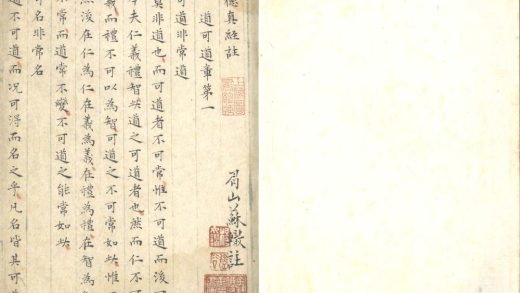 德真經註
眉山蘇轍註
道可道章第一
可道非常道
莫非道也而可道者不可常惟不可道而後
夫仁義禮智此道之可道者也然而仁不可
義而禮不可以為智可道之不可常如此惟
然後在仁為仁在義為義在禮為禮在智為
常而道常不變不可道之能常如此
可名非常名
道不可道而況可得而名之乎凡名皆其可